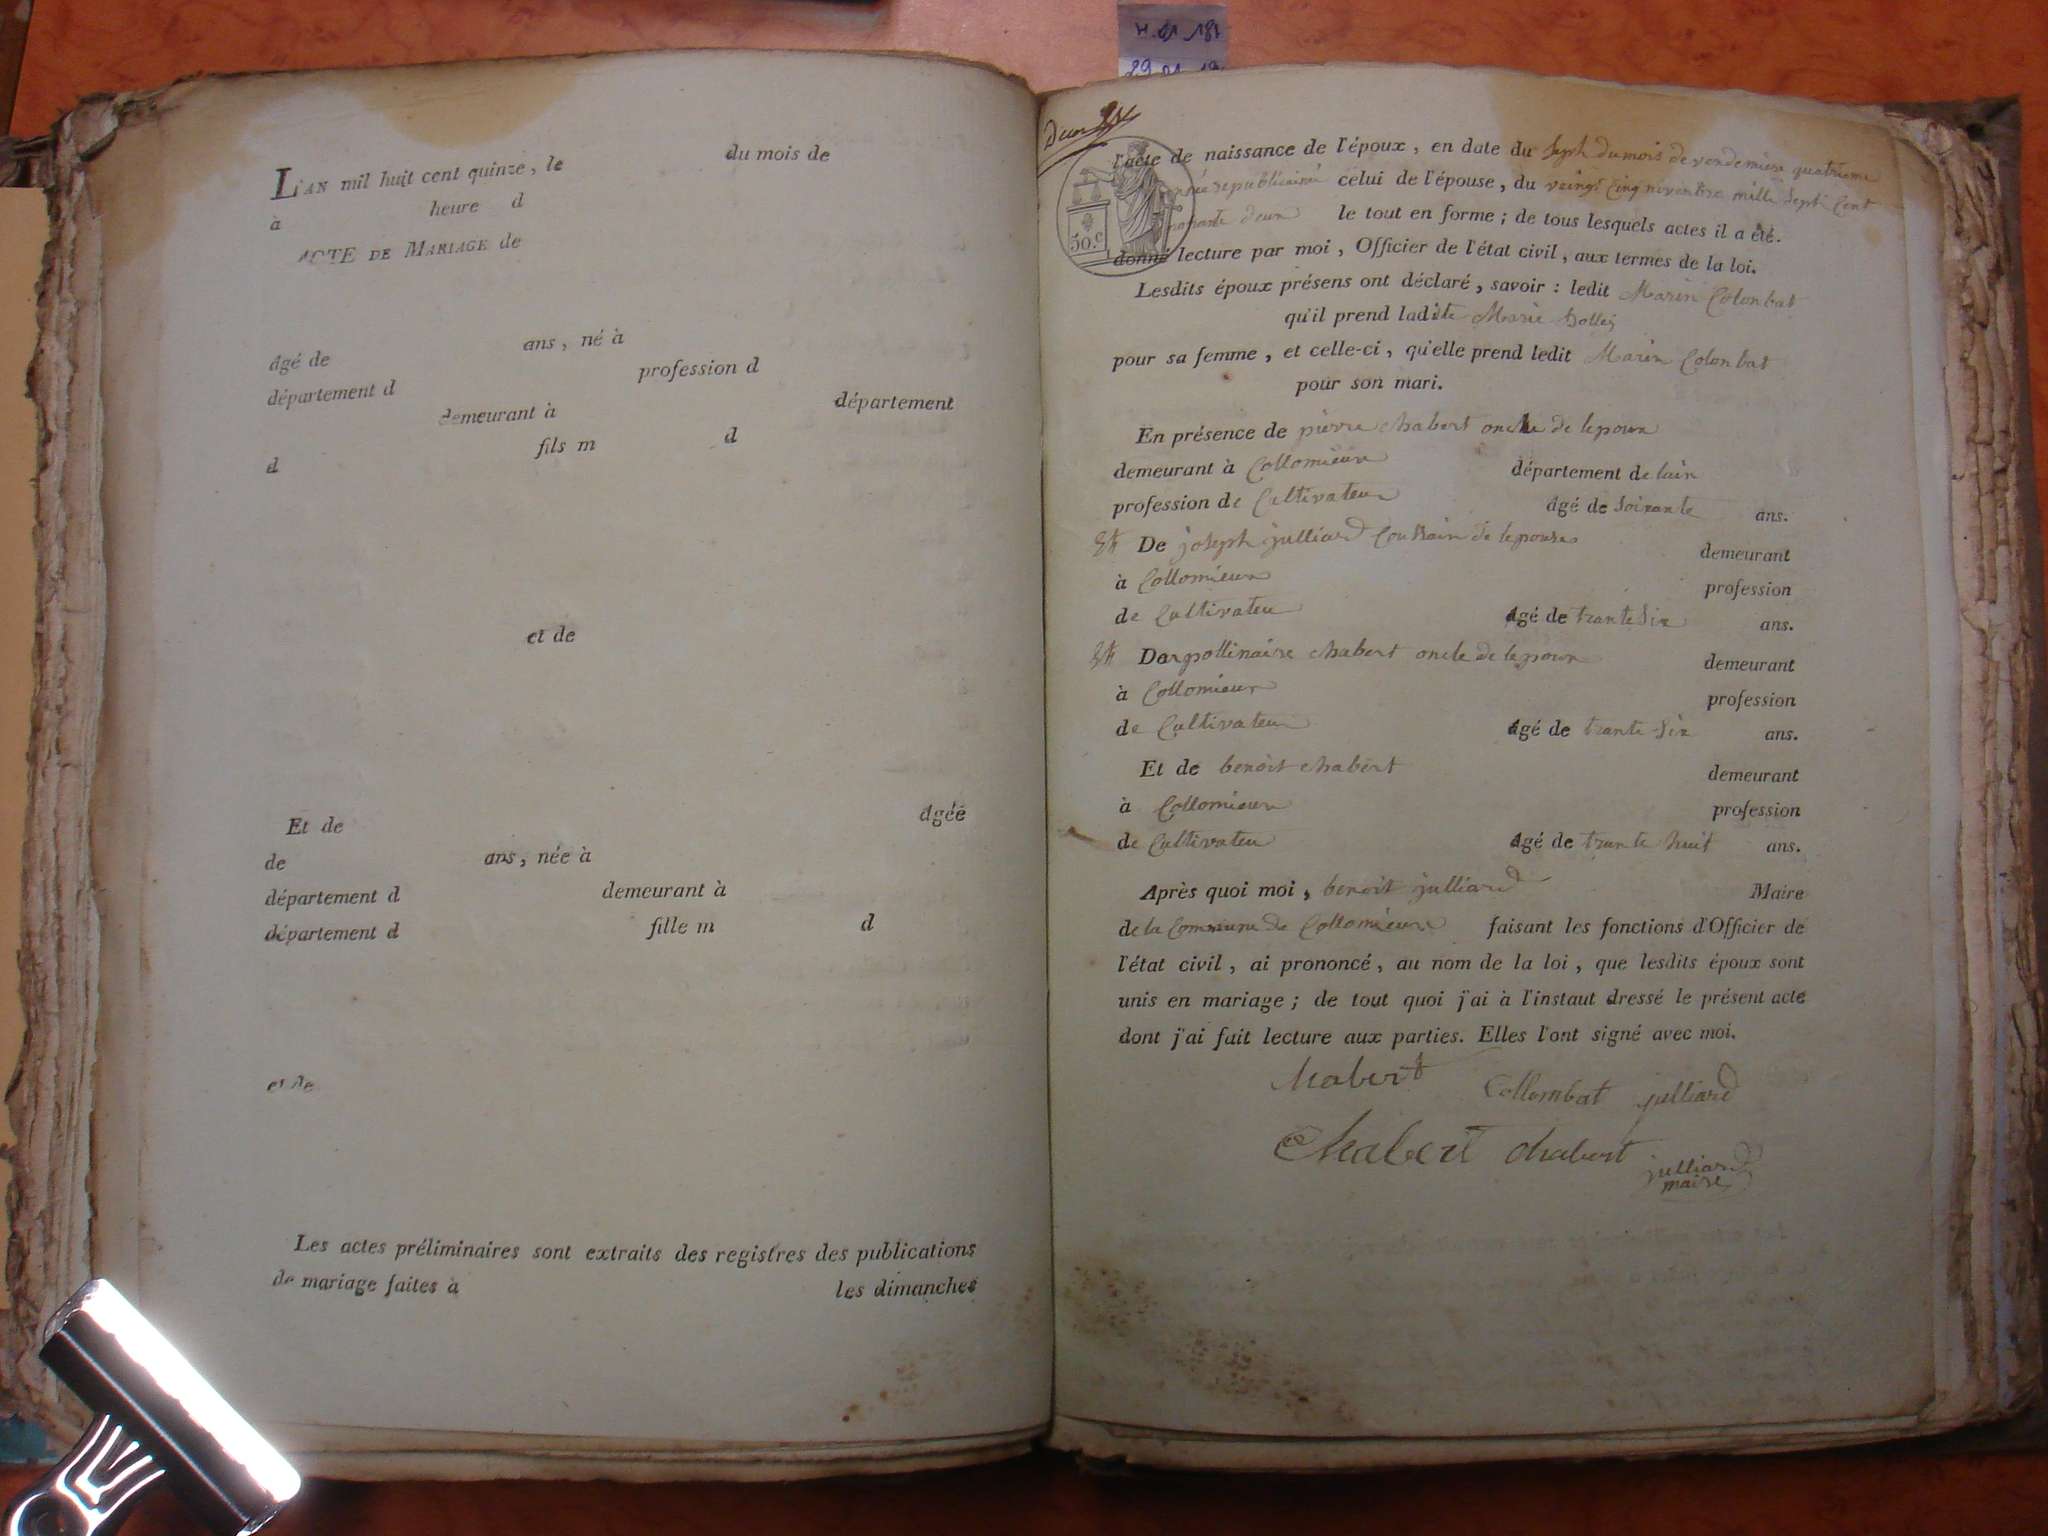 L'AN mil huit cent quinze, le du mois de
à heure d
ACTE DE MARIAGE de
âgé de ans, né à
département d profession d
demeurant à département
d fils m d
et de
Et de âgée
de ans, née à
département d demeurant à
département d fille m d
et de
Les actes préliminaires sont extraits des registres des publications
de mariage faites à les dimanches
29 01
50.c
l'acte de naissance de l'époux, en date du Seph du mois de vendemiere quatrieme
année republicaine celui de l'épouse, du veingt Cinq novembre mille Sept Cent
deun le tout en forme; de tous lesquels actes il a été
donné lecture par moi, Officier de l'état civil, aux termes de la loi.
Lesdits époux présens ont déclaré, savoir : ledit Marin Colonbat
qu'il prend ladite Marie
pour sa femme, et celle-ci, qu'elle prend ledit Marin Colonbat
pour son mari.
En présence de pierre chabert oncle de lepoux
demeurant à Collomieux département de lain
profession de Cultivateur âgé de Soixante ans.
De joseph julliard Coussain de lepouse demeurant
à Collomieux profession
de Cultivateu âgé de trante Six ans.
Darpollinaire chabert oncle de lepoux demeurant
à Collomieux profession
de Cultivateu âgé de trante Six ans.
Et de benoit chabert demeurant
à Collomieux profession
de Cultivateu âgé de trante huit ans.
Après quoi moi, benoit julliard Maire
de la Commune de Collomieux faisant les fonctions d'Officier de
l'état civil, ai prononcé, au nom de la loi, que lesdits époux sont
unis en mariage; de tout quoi j'ai à l'instaut dressé le présent acte
dont j'ai fait lecture aux parties. Elles l'ont signé avec moi.
Chabert Collombat julliard
Chabert chabert julliard
maire